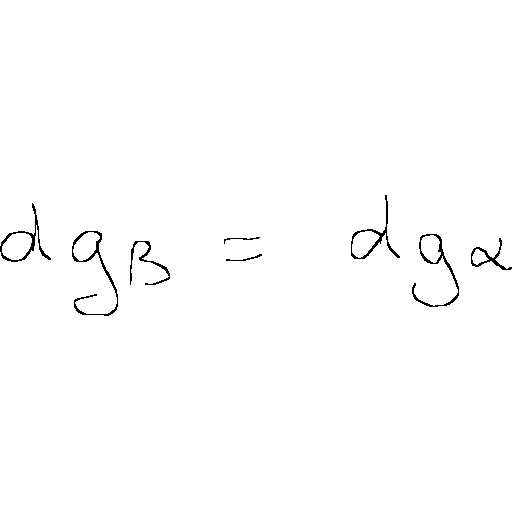 dg_β = dg_α